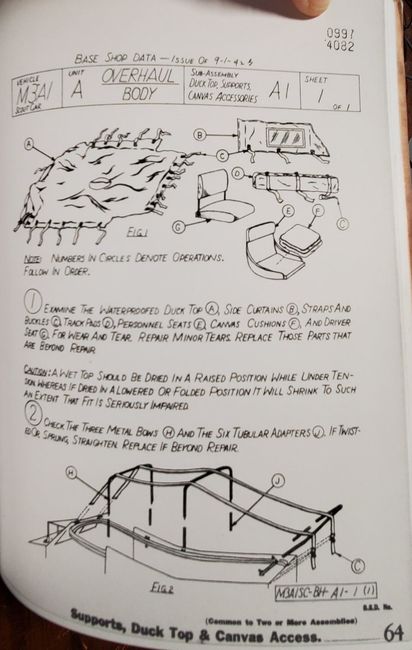 0997
4082
BASE SHOP DATA — ISSUE OF 9-1-42
VEHICLE
M3A1
SCOUT CAR
UNIT
A
OVERHAUL
BODY
SUB-ASSEMBLY
DUCK TOP, SUPPORTS,
CANVAS ACCESSORIES
A1
SHEET
1
OF 1
A
B
C
D
C
E
F
G
FIG. 1
NOTE: NUMBERS IN CIRCLES DENOTE OPERATIONS.
FOLLOW IN ORDER.
1 EXAMINE THE WATERPROOFED DUCK TOP (A), SIDE CURTAINS (B), STRAPS AND
BUCKLES (C), TRACK PADS (D), PERSONNEL SEATS (E), CANVAS CUSHIONS (F), AND DRIVER
SEAT (G), FOR WEAR AND TEAR. REPAIR MINOR TEARS. REPLACE THOSE PARTS THAT
ARE BEYOND REPAIR.
CAUTION: A WET TOP SHOULD BE DRIED IN A RAISED POSITION WHILE UNDER TEN-
SION WHEREAS IF DRIED IN A LOWERED OR FOLDED POSITION IT WILL SHRINK TO SUCH
AN EXTENT THAT FIT IS SERIOUSLY IMPAIRED.
2 CHECK THE THREE METAL BOWS (H) AND THE SIX TUBULAR ADAPTERS (J). IF TWIST-
ED OR SPRUNG, STRAIGHTEN. REPLACE IF BEYOND REPAIR.
H
J
C
FIG. 2
M3A1SC-BH A1-1 (1)
S.S.D. No.
(Common to Two or More Assemblies)
Supports, Duck Top & Canvas Access. 64